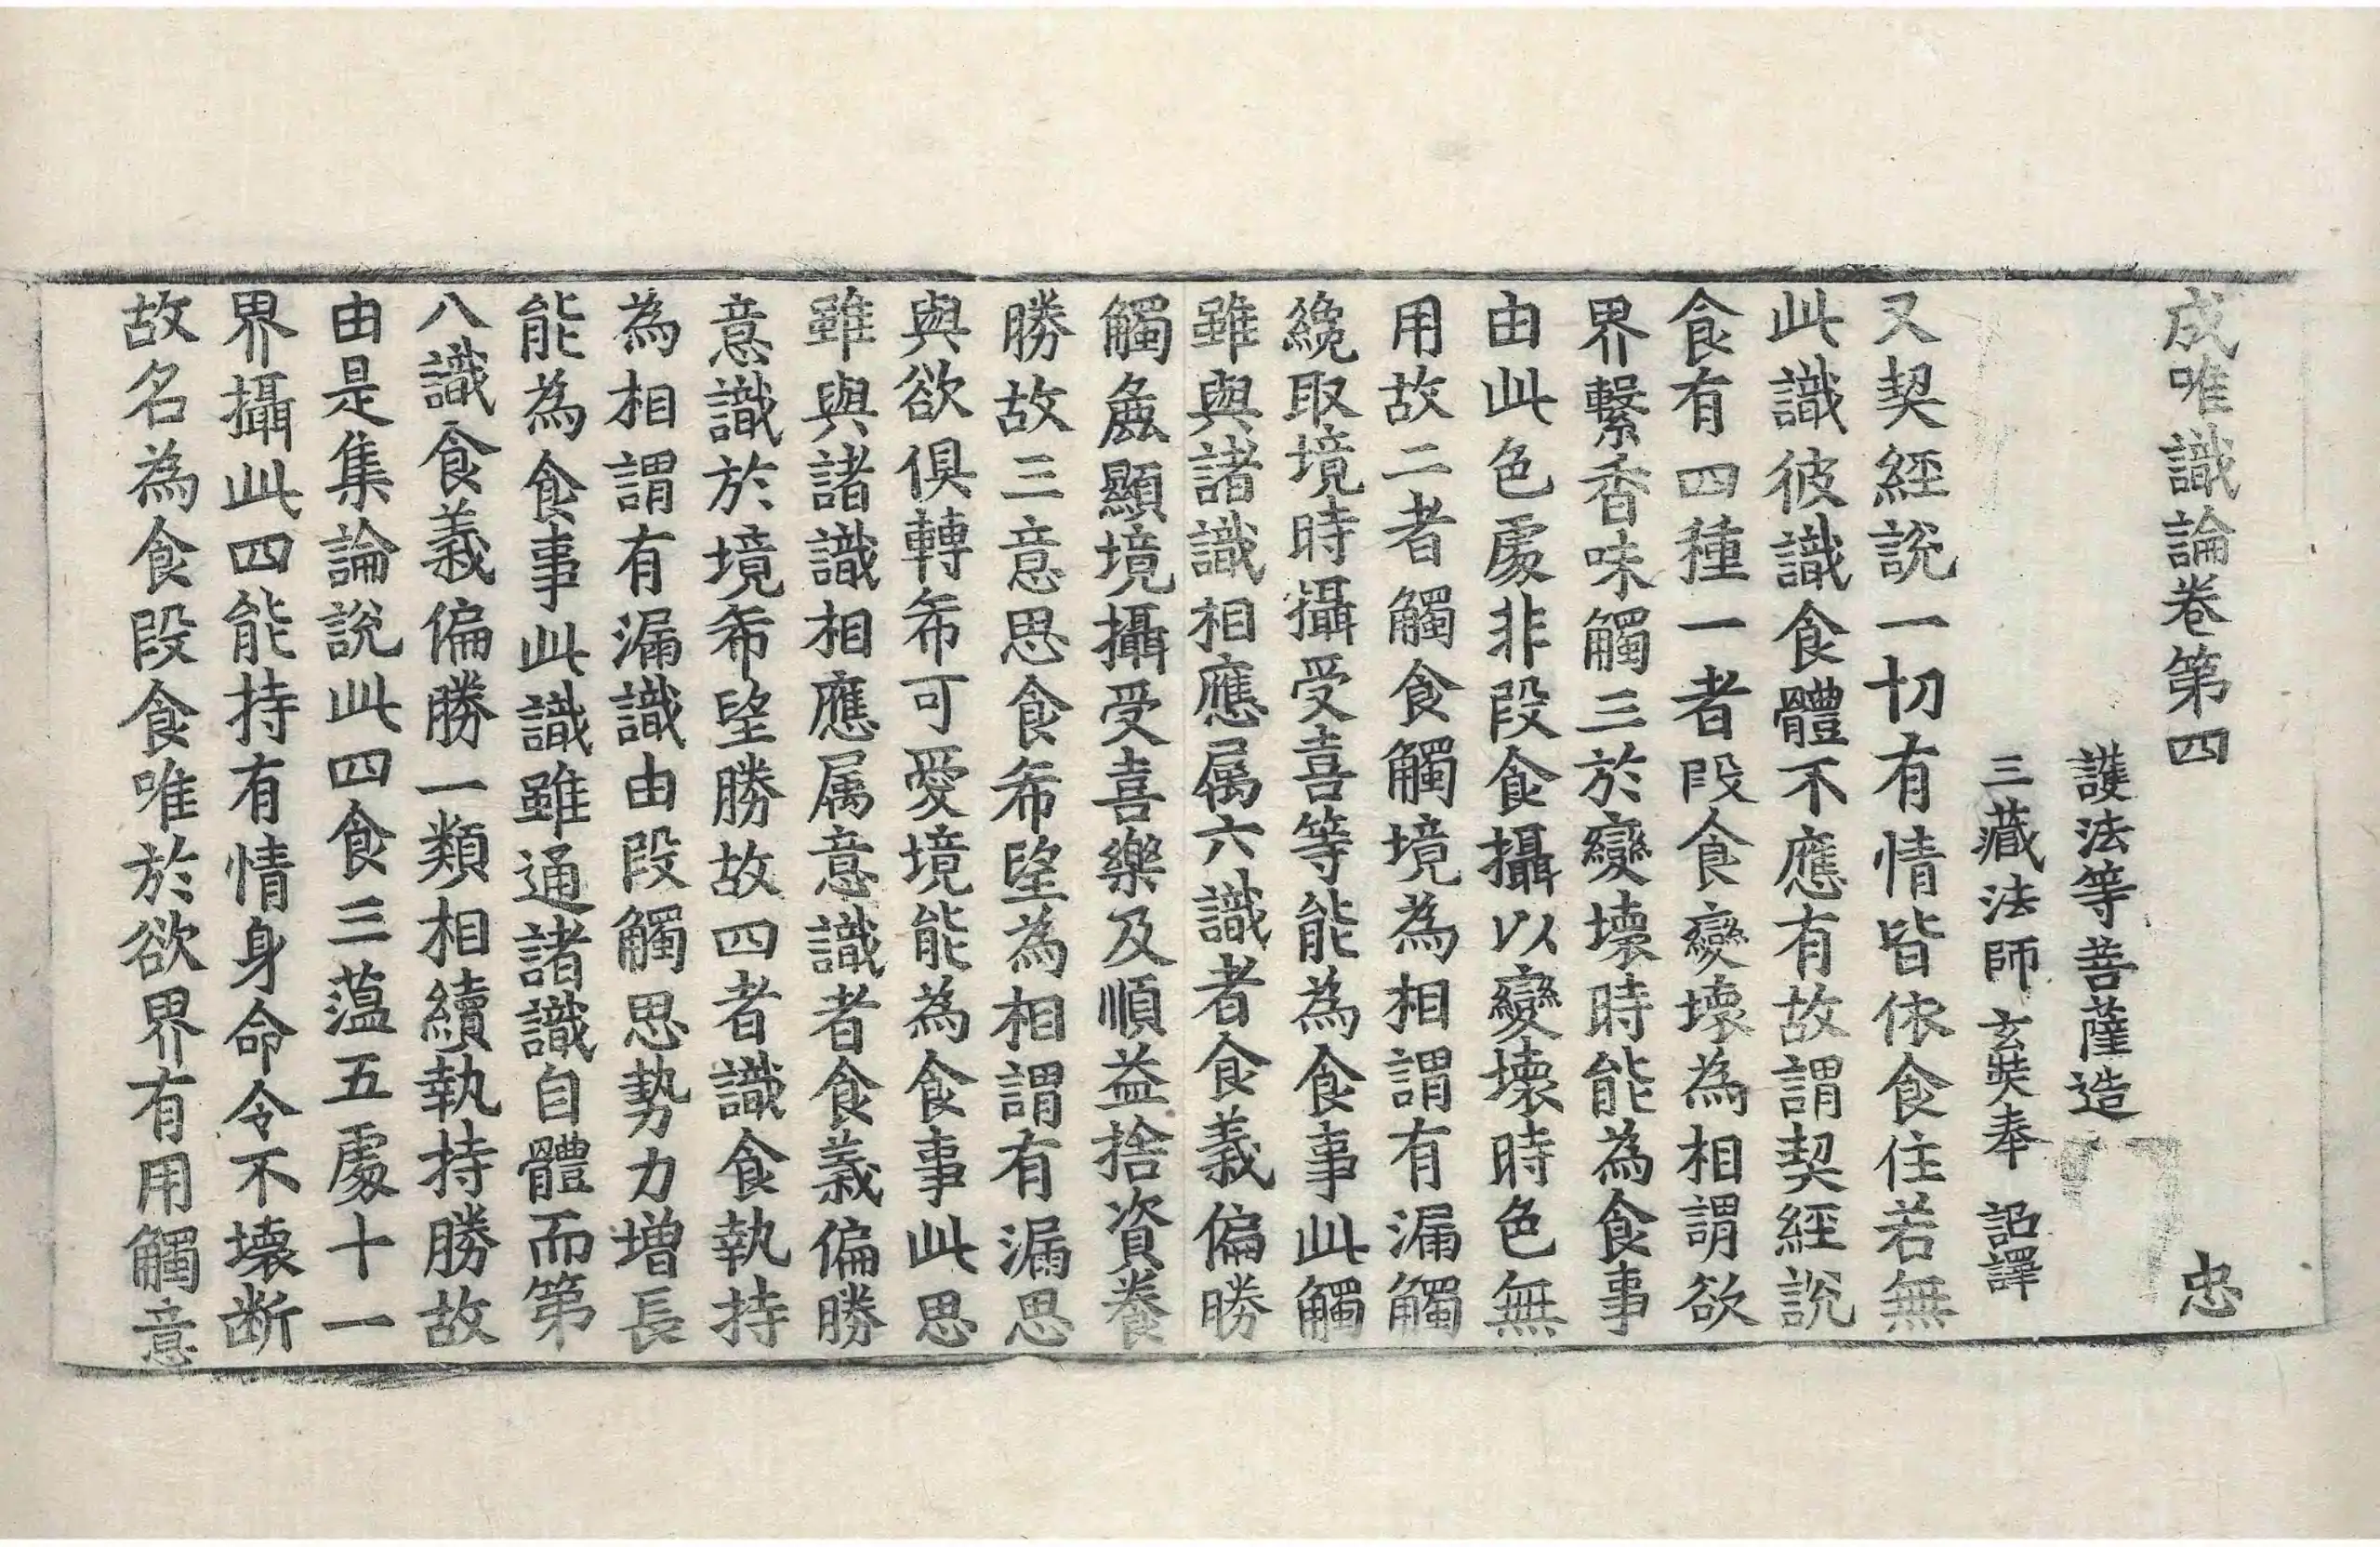 成唯識論卷第四 忠
護法等菩薩造
三藏法師玄奘奉 詔譯
又契經說一切有情皆依食住若無
此識彼識食體不應有故謂契經說
食有四種一者段食變壞為相謂欲
界繫香味觸三於變壞時能為食事
由此色處非段食攝以變壞時色無
用故二者觸食觸境為相謂有漏觸
纔取境時攝受喜等能為食事此觸
雖與諸識相應属六識者食義偏勝
觸麁顯境攝受喜樂及順益捨資養
勝故三意思食希望為相謂有漏思
與欲俱轉希可愛境能為食事此思
雖與諸識相應属意識者食義偏勝
意識於境希望勝故四者識食執持
為相謂有漏識由段觸思勢力增長
能為食事此識雖通諸識自體而第
八識食義偏勝一類相續執持勝故
由是集論說此四食三蘊五處十一
界攝此四能持有情身命令不壞断
故名為食段食唯於欲界有用觸意